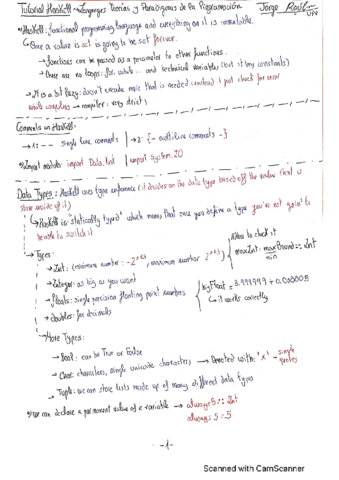 Tutorial Haskell → Lenguajes Teorías y Paradigmas de la Programación Jorge
→ Haskell: functional programming language and everything on it is immutable.
↳ Once a value is set is going to be set forever.
→ functions can be passed as a parameter to other functions.
→ there are no loops: for, while... and technical variables (but it has constants)
→ It is a bit lazy: doesn't execute more than is needed
while compiles → compiler: very strict)
Comments in Haskell:
→ 1: -- single line comments → 2: {- multiline comments -}
→ Import modules: import Data.List import System.IO
Data Types: Haskell uses type inference (it decides on the data type based off the value that is
store inside of it)
↳ Haskell is "statically typed" which means that once you define a type you're not goin' to
be able to switch it
→ Types:
→ Int: (minimum number: -2^63, maximum number 2^63)
→ Integer: as big as you want
→ Floats: single precision floating point numbers
→ doubles: for decimals
How to check it
maxInt = maxBound :: Int
min
bigFloat = 3.999999 + 0.000005
↳ it works correctly
→ More Types:
→ Bool: can be True or False
→ Char: characters, single unicode characters, → Denoted with: 'x' → single
quotes
→ Tuple: we can store lists made up of many different data types
→ We can declare a permanent value of a variable → always5 :: Int
always5 = 5
-1-
Scanned with CamScanner